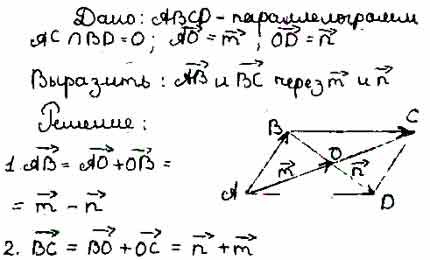 Дано: ABCD - параллелограмм
AC ∩ BD = O; AO⃗ = m⃗; OD⃗ = n⃗
Выразить: AB⃗ и BC⃗ через m⃗ и n⃗
Решение:
1. AB⃗ = AO⃗ + OB⃗ =
= m⃗ - n⃗
2. BC⃗ = BO⃗ + OC⃗ = n⃗ + m⃗
B
C
O
m⃗
n⃗
A
D